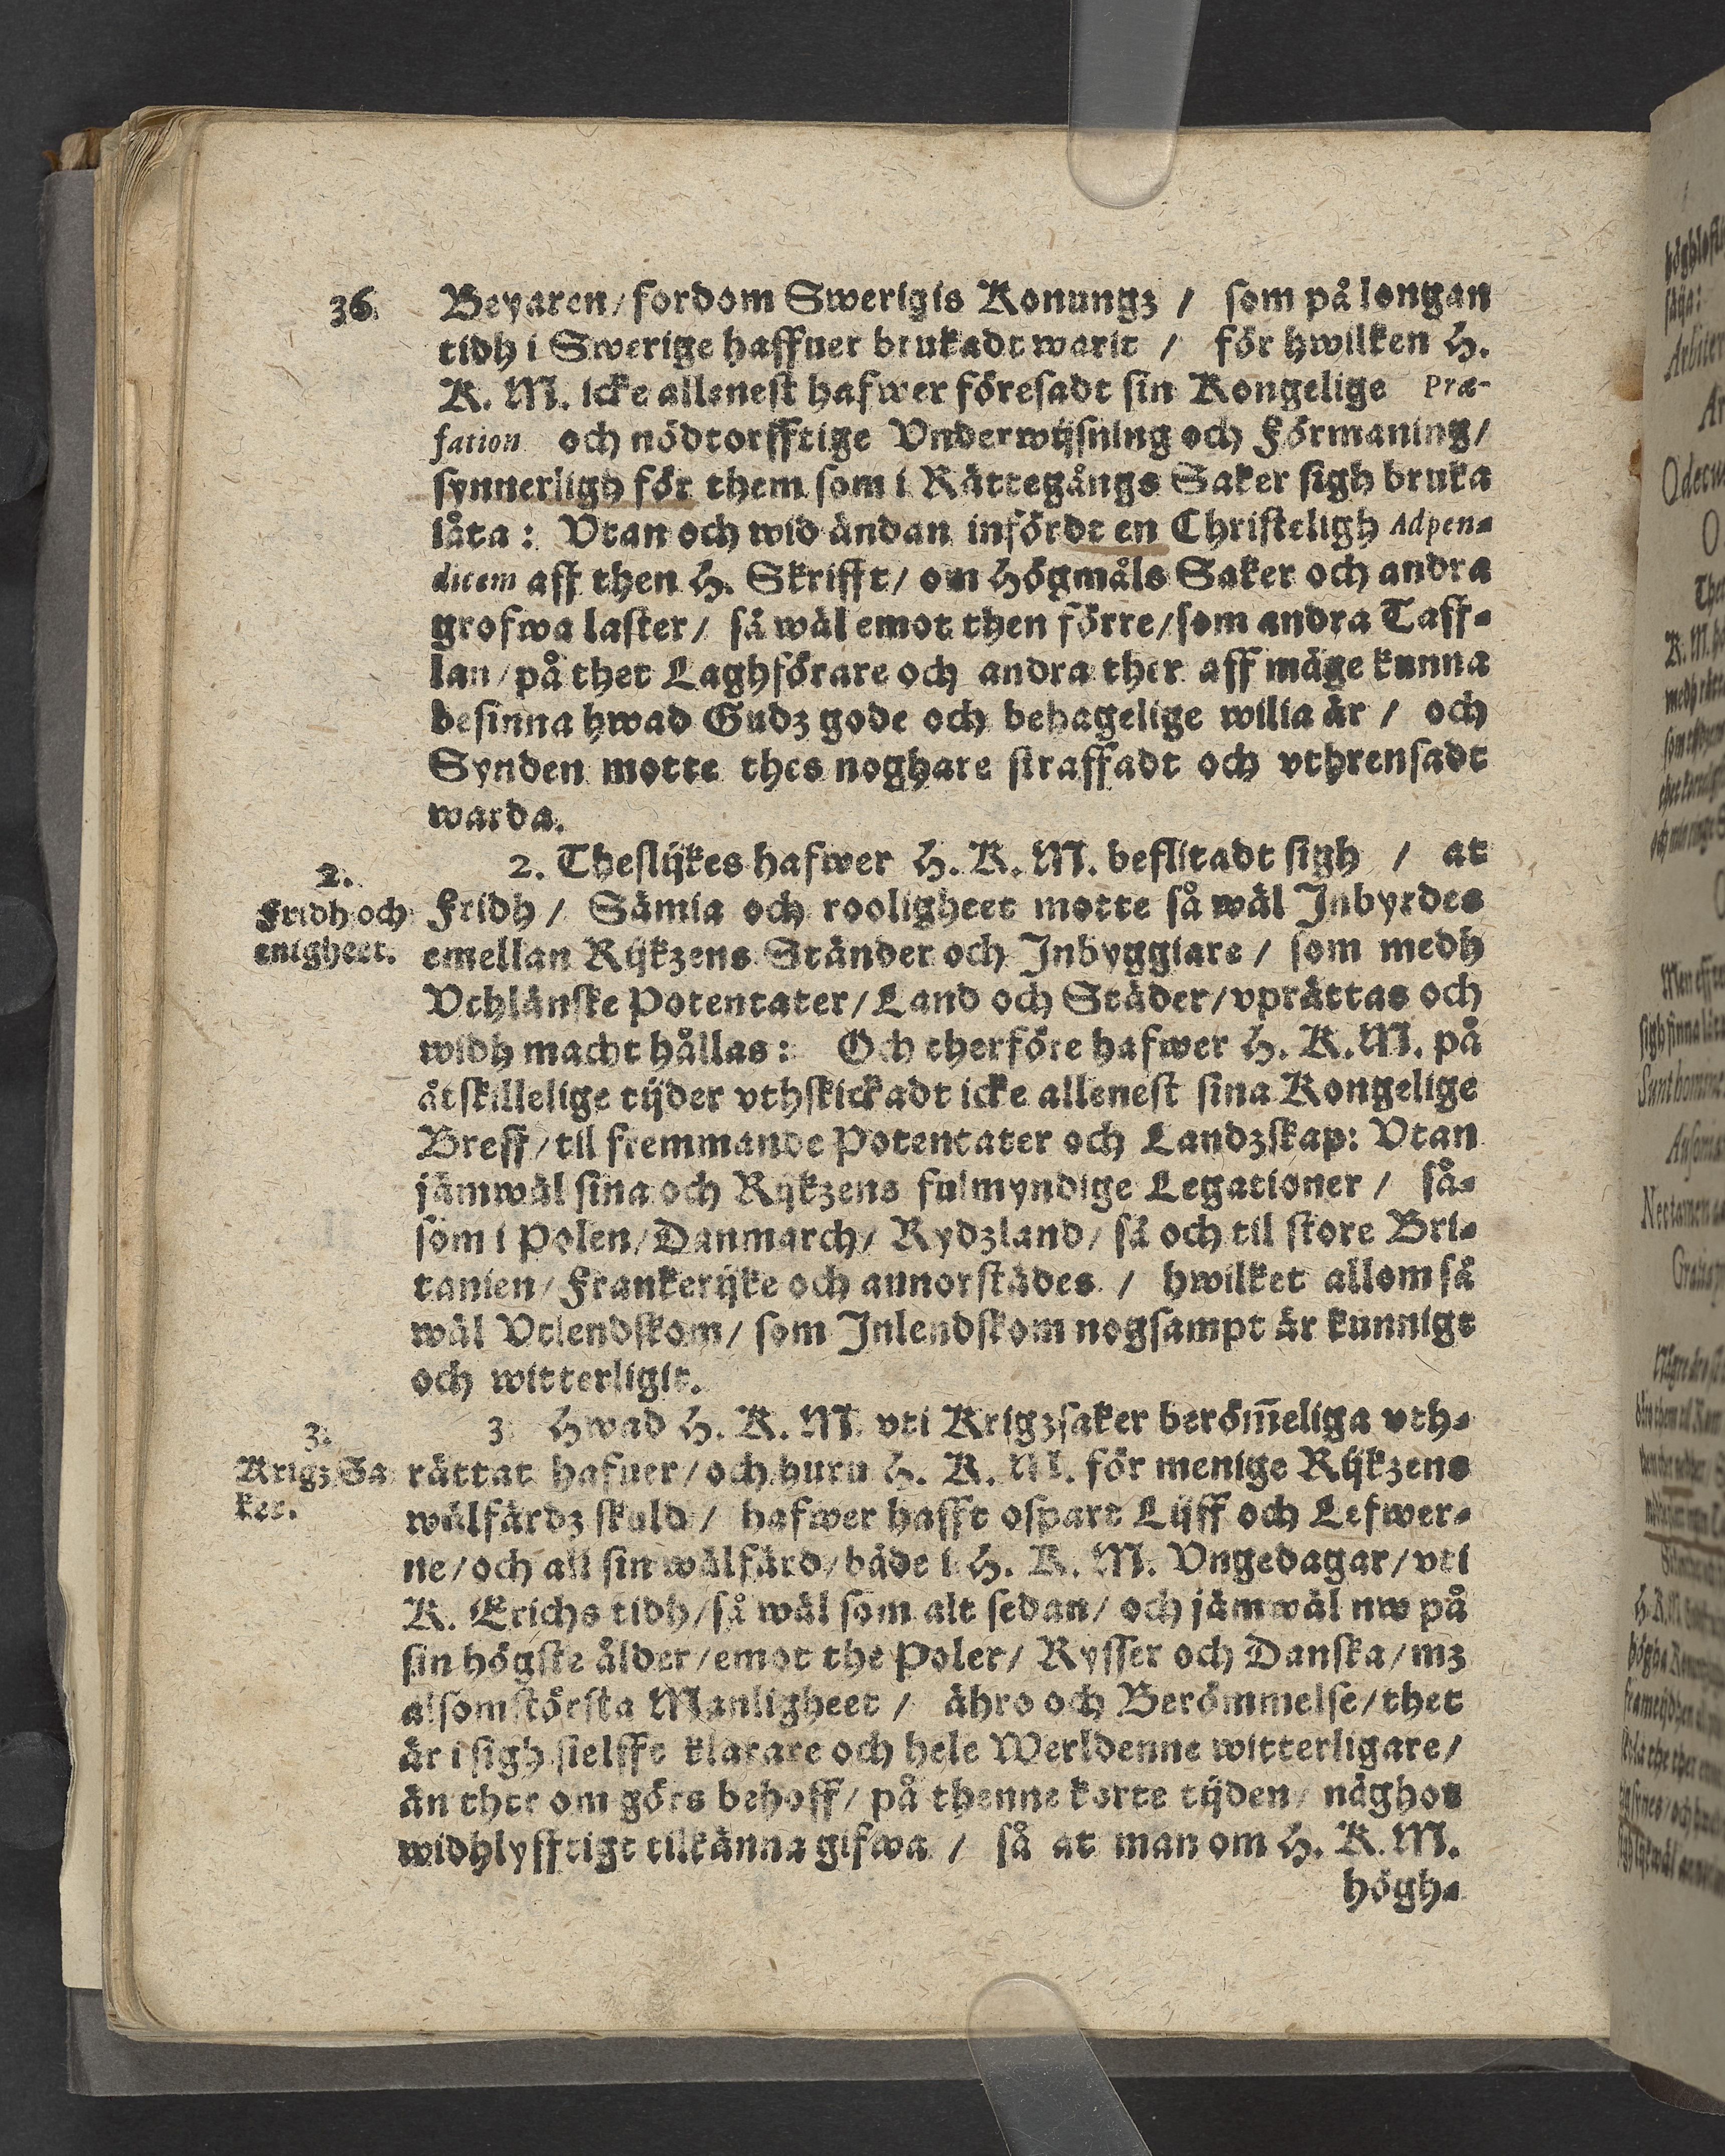 36. Beyaren/fordom Swerigis Konungz / som på longan
tidh i Swerige haffuer brukadt warit / för hwilken H.
K. M. icke allenest hafwer föresadt sin Kongelige Præ-
fation och nödtorfftige Vnderwijsning och Förmaning/
synnerligh för them som i Rättegångs Saker sigh bruka
låta: Vtan och wid ändan infördt en Christeligh Adpen-
dicem aff then H. Skrifft/ om Högmåls Saker och andra
grofwa laster/ så wäl emot then förre/som andra Taff-
lan/på thet Laghförare och andra ther aff måge kunna
besinna hwad Gudz gode och behagelige wilia är / och
Synden motte thes noghare straffadt och vthrensadt
warda.
2.
Fridh och
enigheet.
2. Theslijkes hafwer H. K. M. beflitadt sigh / at
Fridh/ Sämia och rooligheet motte så wäl Inbyrdes
emellan Rijkzens Ständer och Inbyggiare/ som medh
Vthlänske Potentater/Land och Städer/vprättas och
widh macht hållas: Och therföre hafwer H. K. M. på
åtskillelige tijder vthskickadt icke allenest sina Kongelige
Breff/til fremmande Potentater och Landzskap: Vtan
jämwäl sina och Rijkzens fulmyndige Legationer / så-
som i Polen/Danmarch/ Rydzland/ så och til store Bri-
tanien/Frankerijke och annorstädes / hwilket allom så
wäl Vtlendskom/ som Inlendskom nogsampt är kunnigt
och witterligit.
3.
Krigz Sa
ker.
3 Hwad H. K. M. vti Krigzsaker berööm̃eliga vth-
rättat hafuer/och huru H. K. M. för menige Rijkzens
wälfärdz skuld/ hafwer hafft ospart Lijff och Lefwer-
ne/och all sin wälfärd/både i H. K. M. Vngedagar/vti
K. Erichs tidh/så wäl som alt sedan/ och jämwäl nw på
sin högste ålder/emot the Poler/ Rysser och Danska/mz
alsomstörsta Manligheet / ähro och Berömmelse/thet
är i sigh sielffe klarare och hele Werldenne witterligare/
än ther om görs behoff/ på thenne korte tijden/ någhot
widhlyfftigt tilkänna gifwa / så at man om H. K. M.
högh-